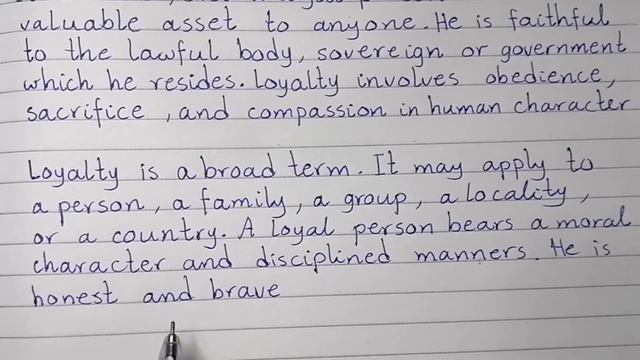 valuable asset to anyone. He is faithful
to the lawful body, sovereign or government
which he resides. Loyalty involves obedience,
sacrifice , and compassion in human character
Loyalty is a broad term. It may apply to
a person, a family, a group, a locality,
or a country. A loyal person bears a moral
character and disciplined manners. He is
honest and brave